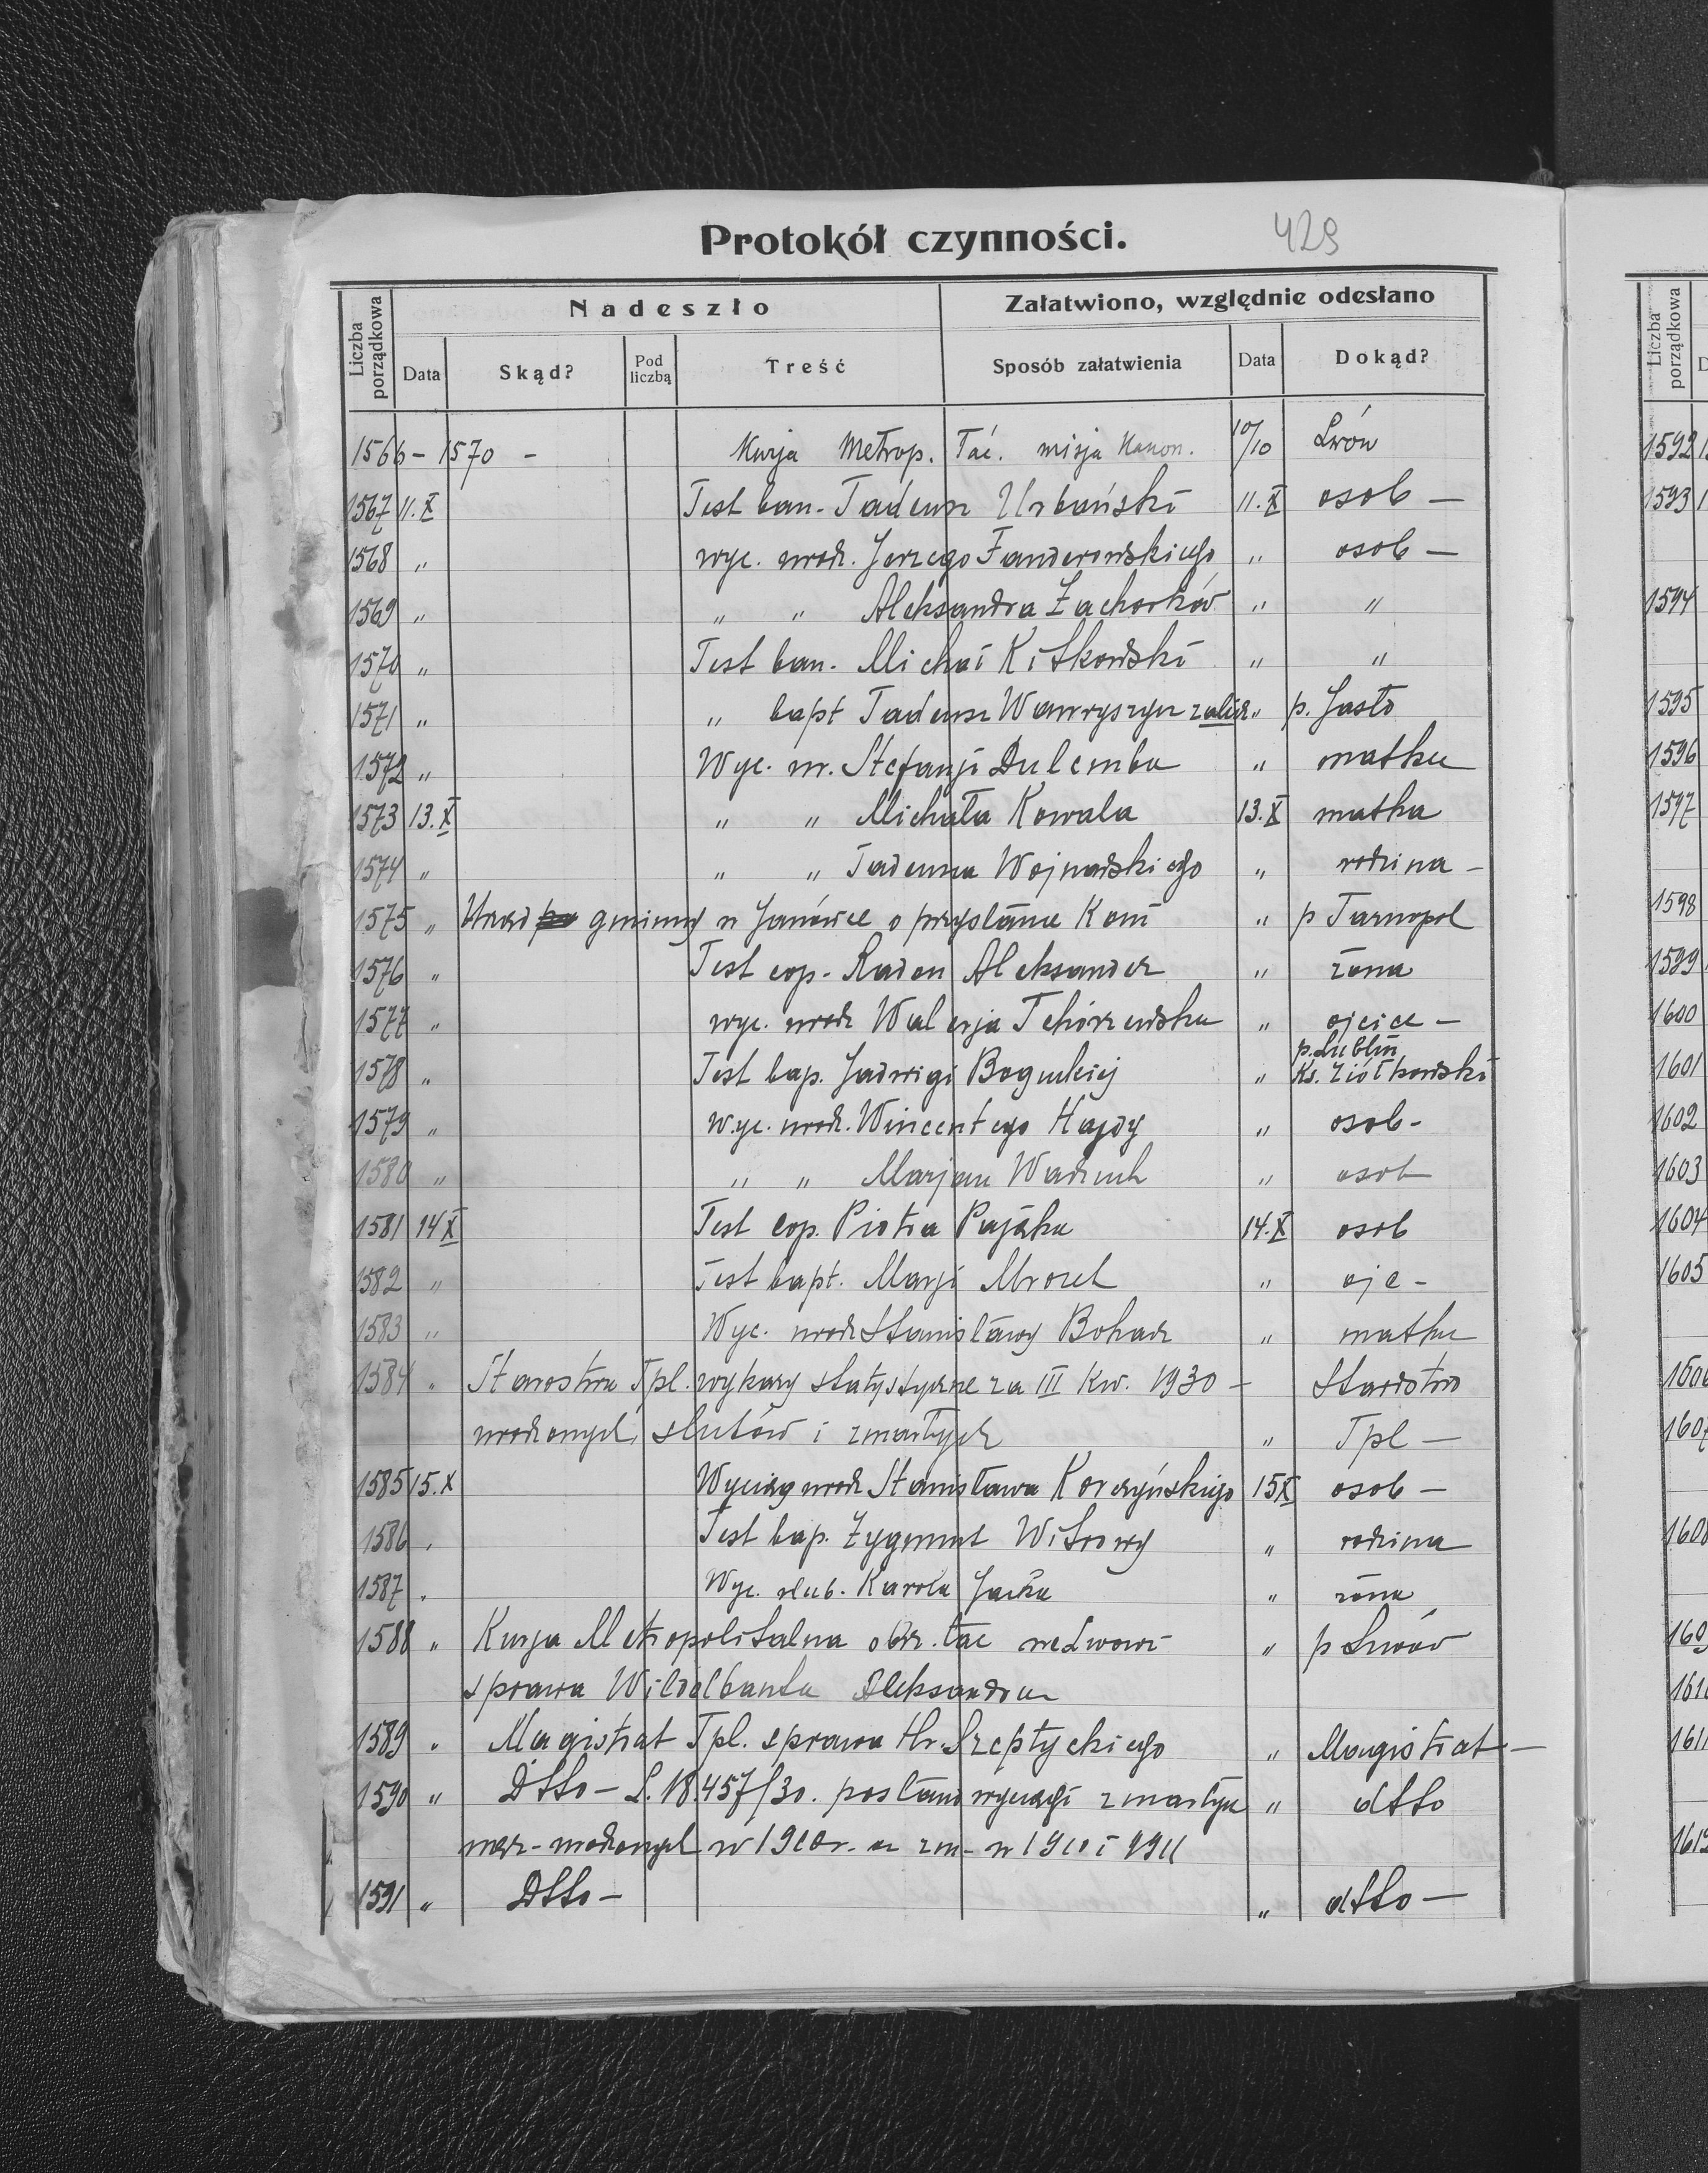 Protokół czynności. 429
Liczba porządkowa Nadeszło Załatwiono, względnie odesłano
Data Skąd? Pod liczbą Treść Sposób załatwienia Data Dokąd?
1566 - 1570 - Kurja Metrop. łać. misja Kanon. 10/10 Lwów
1567 11.X Test ban. Tadeusz Urbański 11.X osob —
1568 " wyc. urodz. Jerzego Fanderowskiego " osob —
1569 " " " Aleksandra Zachorków " "
1570 " Test ban. Michał Kitkowski " "
1571 " " bapt Tadeusz Wawryszyn zalicz " p. Jasło
1572 " Wyc. ur. Stefanji Dulemba " matka
1573 13.X " " Michała Kowala 13.X matka
1574 " " " Tadeusza Wojnarskiego " rodzina -
1575 " Urząd gminny w Janówce o przysłanie Kom " p Tarnopol
1576 " Test cop. Radon Aleksander " żona
1577 " wyc. urodz Walerja Tchórzewska " ojciec -
1578 " Test bap. Jadwigi Boguckiej " p. Lublin Ks. Ziółkowski
1579 " wyc. urodz. Wincentego Hajdy " osob -
1580 " " " Marjan " osob
1581 14 X Test cop. Piotra Pająka 14.X osob
1582 " Test bapt. Marji Mrozek " ojc -
1583 " Wyc. urodz Stanisławy " matka
1584 " Starostwo Tpl. wykazy statystyczne za III Kw. 1930 - Starostwo
urodzonych, ślubów i zmarłych " Tpl —
1585 15.X Wyciąg urodz Stanisława Korczyńskiego 15X osob —
1586 " Test bap. Zygmunt Witrowy " rodzina
1587 " Wyc. ślub. Karola Jacka " żona
1588 " Kurja Metropolitalna obrz. łać we Lwowi " p Lwów
sprawa Wildelbanta Aleksandra
1589 " Magistrat Tpl. sprawa Hr. Szeptyckiego " Magistrat —
1590 " Dtto - L. 18.457/30. posłano wyciągi zmarłych " dtto
męz- urodzonych w 1910 r. a zm- w 1910 i 1911
1591 " Dtto — " dtto —
Liczba porządkowa
1592
1593
1594
1595
1596
1597
1598
1599
1600
1601
1602
1603
1604
1605